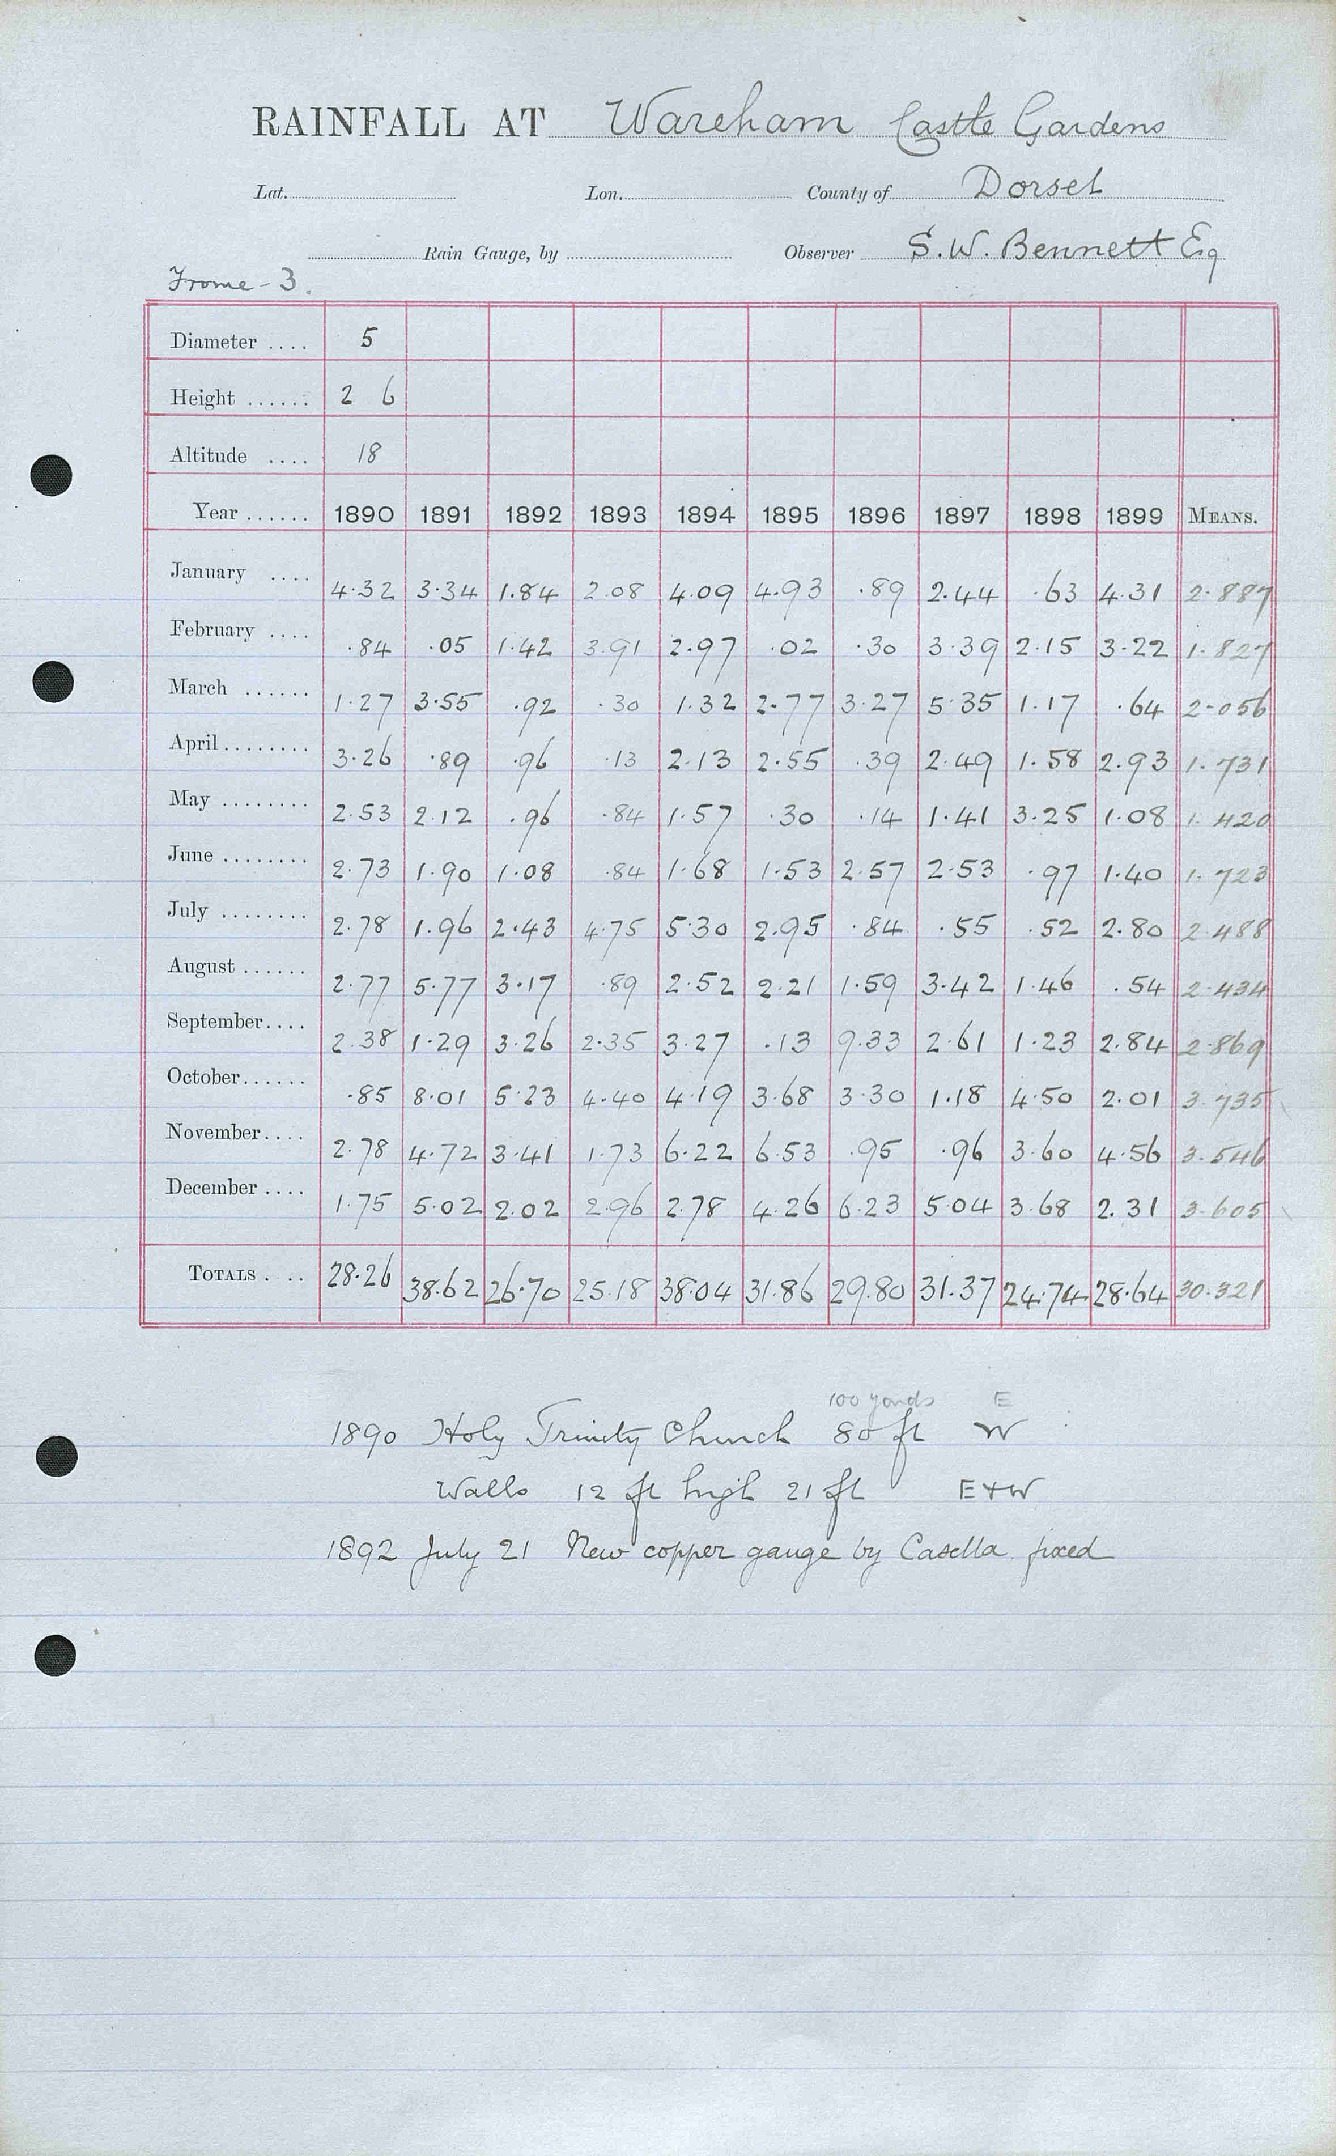 RAINFALL AT Wareham Castle Gardens
Lat. Lon. County of Dorset
Rain Gauge, by Observer S.W. Bennett Esq
Frome - 3.
Diameter .... 5
Height ...... 2 6
Altitude .... 18
Year ...... 1890 1891 1892 1893 1894 1895 1896 1897 1898 1899 MEANS.
January .... 4.32 3.34 1.84 2.08 4.09 4.93 .89 2.44 .63 4.31 2.887
February .... .84 .05 1.42 3.91 2.97 .02 .30 3.39 2.15 3.22 1.827
March ...... 1.27 3.55 .92 .30 1.32 2.77 3.27 5.35 1.17 .64 2.056
April ........ 3.26 .89 .96 .13 2.13 2.55 .39 2.49 1.58 2.93 1.731
May ........ 2.53 2.12 .96 .84 1.57 .30 .14 1.41 3.25 1.08 1.420
June ........ 2.73 1.90 1.08 .84 1.68 1.53 2.57 2.53 .97 1.40 1.723
July ........ 2.78 1.96 2.43 4.75 5.30 2.95 .84 .55 .52 2.80 2.488
August ...... 2.77 5.77 3.17 .89 2.52 2.21 1.59 3.42 1.46 .54 2.434
September.... 2.38 1.29 3.26 2.35 3.27 .13 9.33 2.61 1.23 2.84 2.869
October...... .85 8.01 5.23 4.40 4.19 3.68 3.30 1.18 4.50 2.01 3.735
November.... 2.78 4.72 3.41 1.73 6.22 6.53 .95 .96 3.60 4.56 3.546
December .... 1.75 5.02 2.02 2.96 2.78 4.26 6.23 5.04 3.68 2.31 3.605
TOTALS . .. 28.26 38.62 26.70 25.18 38.04 31.86 29.80 31.37 24.74 28.64 30.321
100 yards E
1890 Holy Trinity Church 80 ft W
Walls 12 ft high 21 ft E + W
1892 July 21 New copper gauge by Casella fixed